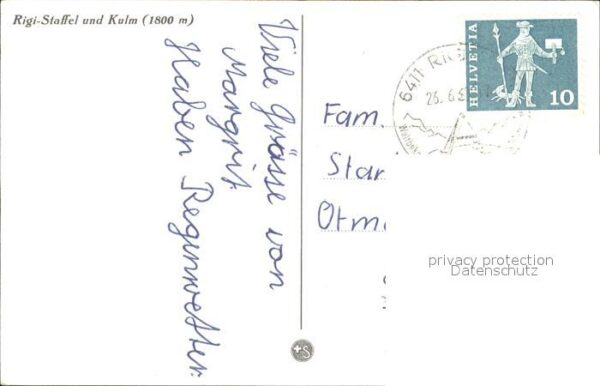 Rigi-Staffel und Kulm (1800 m)
Viele Grüsse von
Margrit.
Haben Regenwetter.
HELVETIA
10
6411 RIGI
Fam.
Star
Otm
privacy protection
Datenschutz
+S